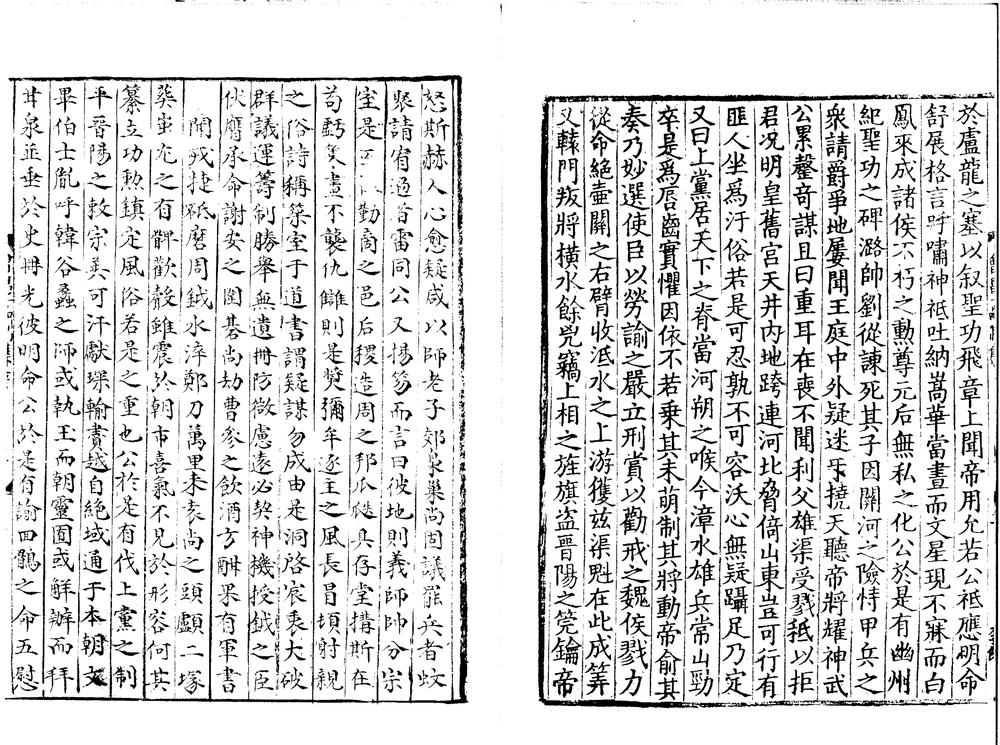 於盧龍之塞以叙聖功飛章上聞帝用允若公祗應明命
舒展格言呼嘯神祗吐納嵩華當晝而文星現不寐而白
鳳來成諸侯不朽之勳尊元后無私之化公於是有幽州
紀聖功之碑潞帥劉從諫死其子因關河之險恃甲兵之
衆請爵爭地屢聞王庭中外疑迷撓天聽帝將耀神武
公累罄奇謀且曰重耳在喪不聞利父雄渠受戮秪以拒
君况明皇舊宮天井內地跨連河北脅倚山東豈可行有
匪人坐為汙俗若是可忍孰不可容沃心無疑躡足乃定
又曰上黨居天下之脊當河朔之喉今漳水雄兵常山勁
卒是為唇齒實懼因依不若乗其未萌制其將動帝俞其
奏乃妙選使臣以勞諭之嚴立刑賞以勸戒之魏侯戮力
從命絶壷關之右臂收泜水之上游獲兹渠魁在此成筭
又轅門叛將橫水餘兇竊上相之旌旗盗晋陽之筦鑰帝
怒斯赫人心愈疑咸以師老子郊泉巢尚固議罷兵者蚊
聚請宥過者雷同公又揚笏而言曰彼地則義師師分宗
室是勤啇之邑后稷造周之邦瓜瓞具存堂搆斯在
苟虧䇿畫不襲仇讎則是獎彌牟逐主之風長冒頓射親
之俗詩稱築室于道書謂疑謀勿成由是洞啓宸衷大破
群議運籌制勝舉無遺冊防微慮遠必契神機授鉞之臣
伏膺承命謝安之圍碁尚劫曹參之飲酒方酣果有軍書
聞戎捷秪磨周鉞水淬鄭刀萬里来袁尚之頭顱二塚
葬蚩尤之有髀歡聲雖震於朝市喜氣不見於形容何其
纂立功勲鎮定風俗若是之重也公於是有伐上黨之制
平晋陽之敕宗羙可汗獻琛輸賮越自絶域通于本朝文
畢伯士胤呼韓谷蠡之師或執玉而朝靈囿或解辮而拜
甘泉並垂於史冊光彼明命公於是有諭回鶻之命五慰